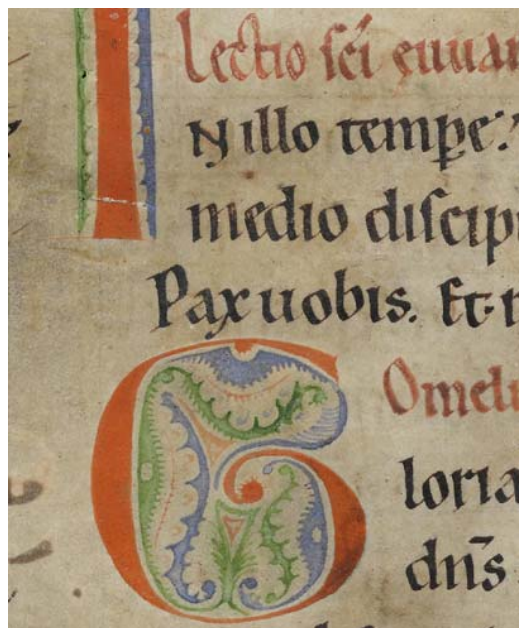 Lectio sc̄i euuan
IN illo temp̱e:
medio discip
Pax uobis. Et
Omeli
Gloria
dn̄s